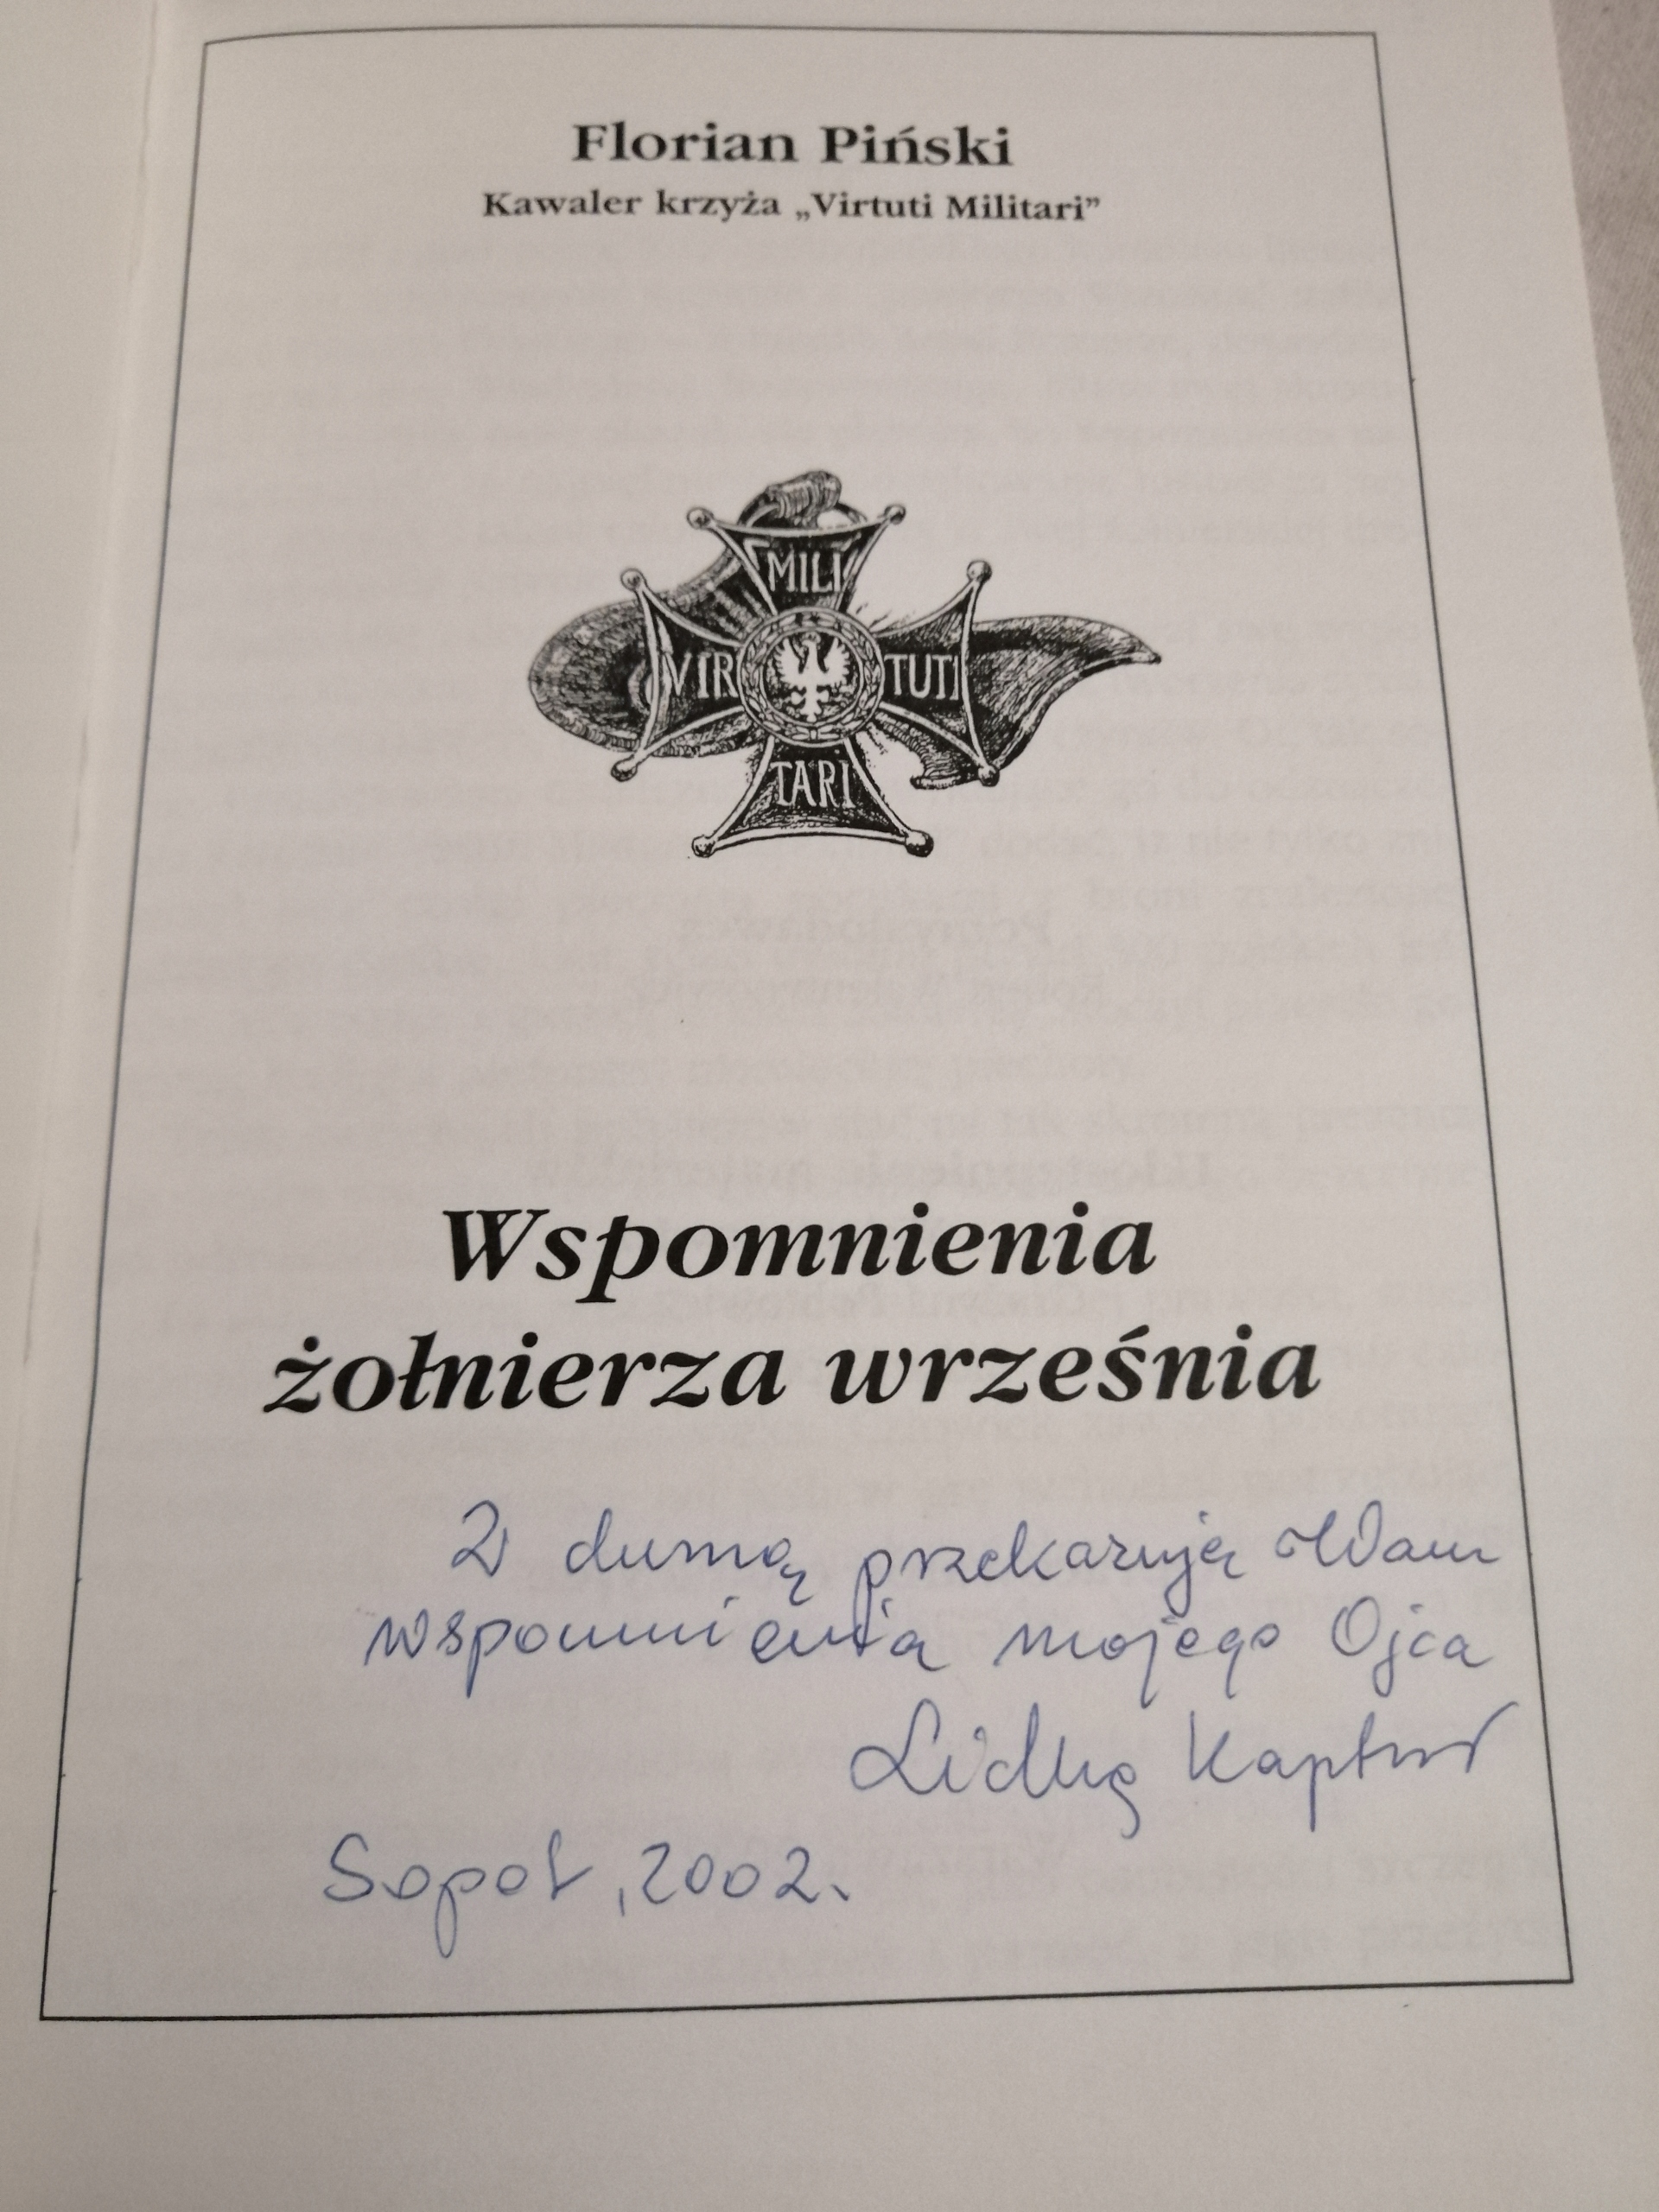 Florian Piński
Kawaler krzyża „Virtuti Militari”
MILI
VIR TUTI
TARI
Wspomnienia
żołnierza września
Z dumą przekazuję Wam
wspomnienia mojego Ojca
Kaptur
Sopot, 2002.